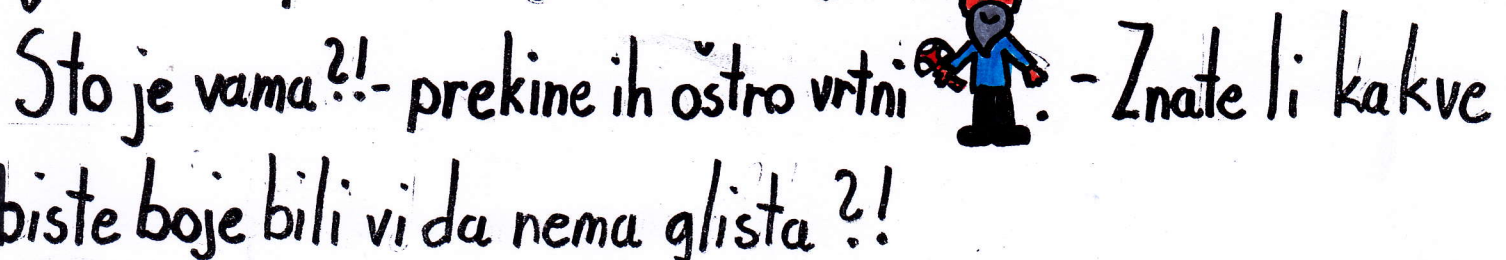 Što je vama?!- prekine ih oštro vrtni . - Znate li kakve
biste boje bili vi da nema glista ?!